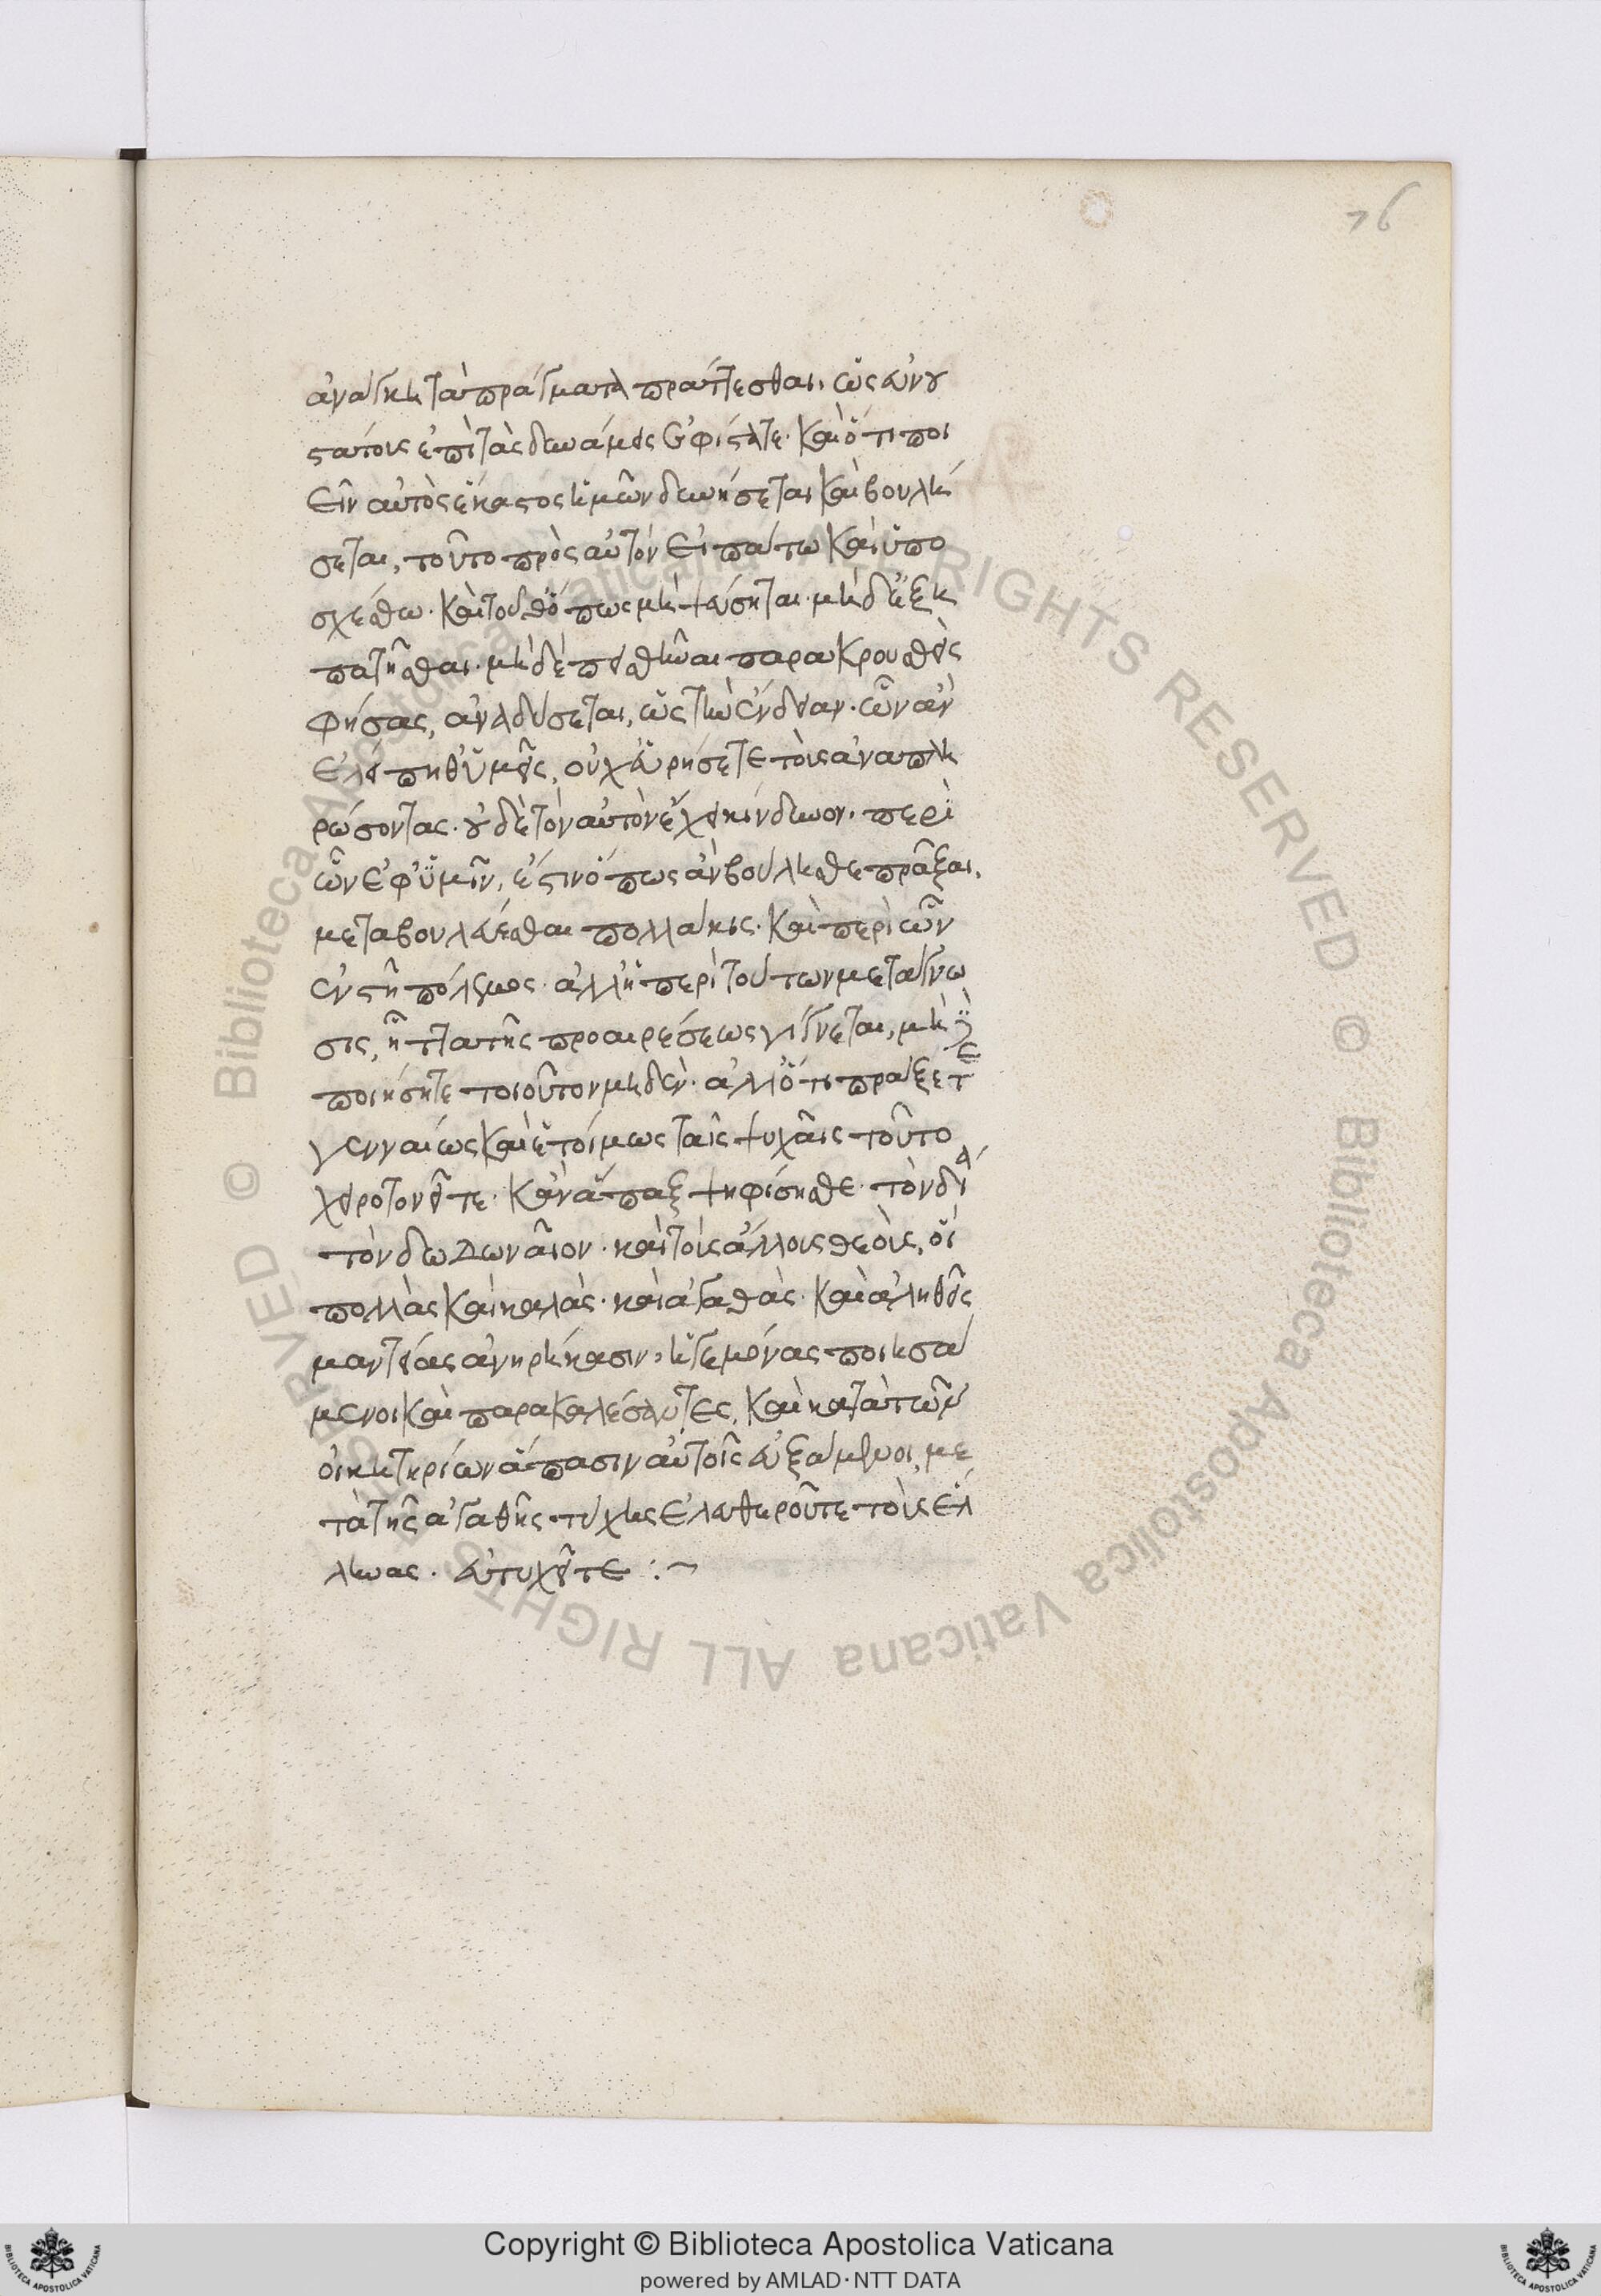 76
ἀνάγκη τὰ πράγματα πράττεσθαι, ὡς εὐνου
στάτοις ἐπὶ τὰς δυνάμεις ἐφίστατε. καὶ ὅ τι ποι
εῖν αὐτὸς ἕκαστος ἡμῶν δυνήσεται καὶ βουλή
σεται, τοῦτο πρὸς αὐτὸν εἰπάτω καὶ ὑπο
σχέσθω. καὶ τοῦθ' ὅπως μὴ ψεύσηται. μηδ' ἐξη
πατῆσθαι. μηδὲ πεισθῆναι παρακρουσθεὶς
φήσας, ἀναδύσεται, ὡς τὴν ἔνδειαν. ὧν ἂν
ἐλλείπηθ' ὑμεῖς, οὐχ εὑρήσετε τοὺς ἀναπλη
ρώσοντας. οὐδὲ τὸν αὐτὸν ἔχει κίνδυνον. περὶ
ὧν ἐφ' ὑμῖν, ἐστὶν ὅπως ἂν βούλησθε πρᾶξαι,
μεταβουλεύεσθαι πολλάκις. καὶ περὶ ὧν
ἐνστῇ πόλεμος. ἀλλ' ἡ περὶ τούτων μετάγνω
σις, ἧττα τῆς προαιρέσεως γίγνεται, μὴ
ποιήσητε τοιοῦτον μηδέν. ἀλλ' ὅ τι πράξετε
γενναίως καὶ ἑτοίμως ταῖς ψυχαῖς τοῦτο
χειροτονεῖτε. κἂν ἅπαξ ψηφίσησθε. τὸν δία
τὸν δωδωναῖον. καὶ τοὺς ἄλλους θεοὺς, οἳ
πολλὰς καὶ καλὰς. καὶ ἀγαθὰς. καὶ ἀληθεῖς
μαντείας ἀνῃρήκασιν, ἡγεμόνας ποιησά
μενοι καὶ παρακαλέσαντες, καὶ κατὰ τῶν
οἰκητηρίων ἅπασιν αὐτοῖς εὐξάμενοι, με
τὰ τῆς ἀγαθῆς τύχης ἐλευθεροῦτε τοὺς ἕλ
ληνας. εὐτυχεῖτε :~
© Biblioteca Apostolica Vaticana ALL RIGHTS RESERVED © Biblioteca Apostolica Vaticana ALL RIGHTS RESERVED
Copyright © Biblioteca Apostolica Vaticana
powered by AMLAD·NTT DATA
BIBLIOTECA APOSTOLICA VATICANA
BIBLIOTECA APOSTOLICA VATICANA